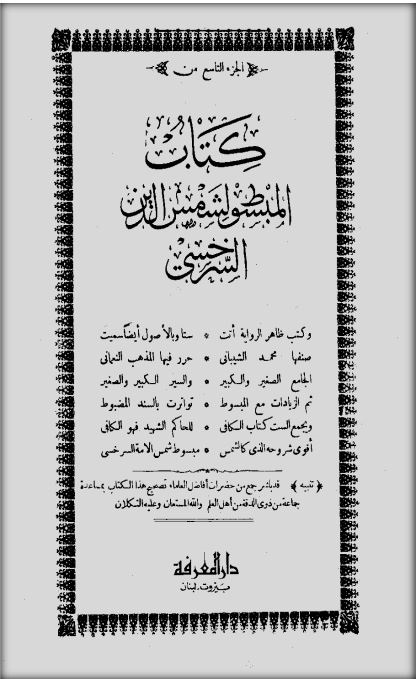 الجزء التاسع من
كتاب
المبسوط لشمس الدين
السرخسي
وكتب ظاهر الرواية أتت * ستا وبالأصول أيضا سميت
صنفها محمد الشيباني * حرر فيها المذهب النعماني
الجامع الصغير والكبير * والسير الكبير والصغير
ثم الزيادات مع المبسوط * تواترت بالسند المضبوط
ويجمع الست كتاب الكافي * للحاكم الشهيد فهو الكافي
أقوى شروحه الذي كالشمس * مبسوط شمس الأمة السرخسي
﴿ تنبيه ﴾ قد باشر جمع من حضرات أفاضل العلماء تصحيح هذا الكتاب بمساعدة
جماعة من ذوي الدقة من أهل العلم والله المستعان وعليه التكلان
دار المعرفة
بيروت. لبنان